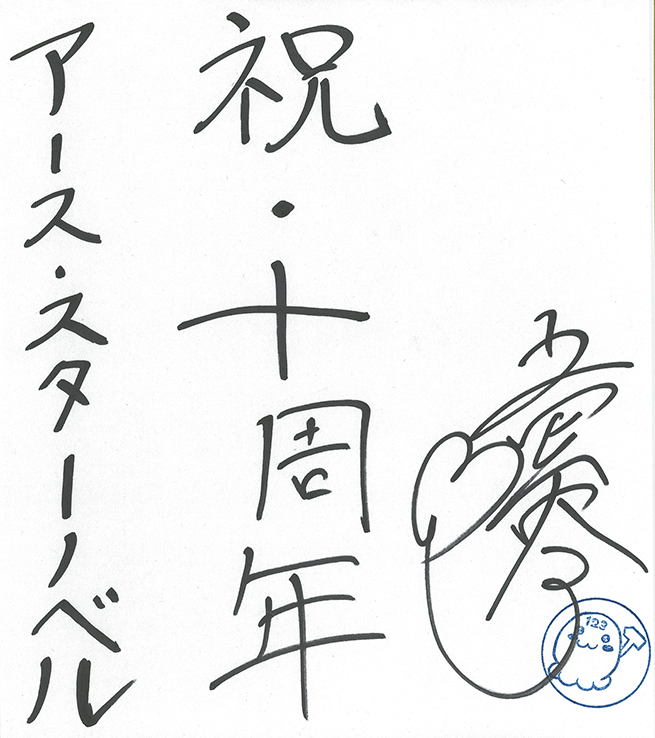 祝・十周年
アース・スターノベル